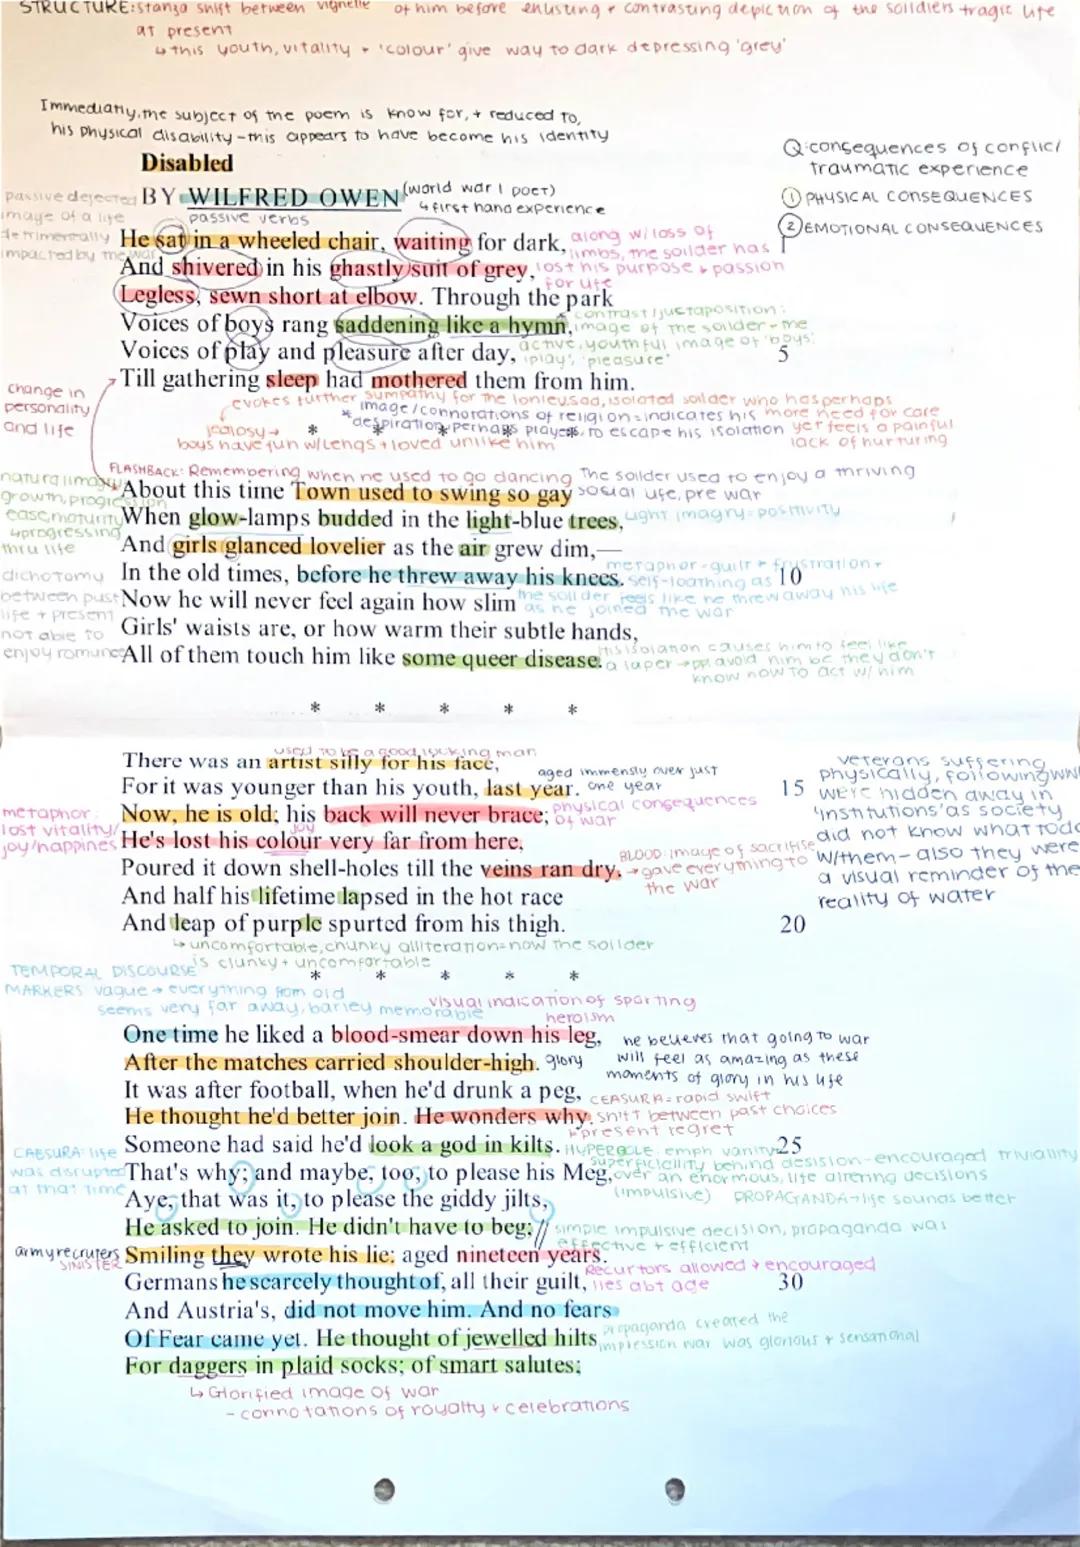 STRUCTURE: stanza shift between vignette of him before enlisting + contrasting depiction of the solldiers tragic life
at present
↳ this youth, vitality + 'colour' give way to dark depressing 'grey'
Immediatly, the subject of the poem is know for, + reduced to,
his physical disability - this appears to have become his identity
Q: consequences of conflict/
traumatic experience
① PHYSICAL CONSEQUENCES
② EMOTIONAL CONSEQUENCES
Disabled
BY WILFRED OWEN (world war 1 poet)
↳ first hand experience
passive dejected
image of a life
detrimentally
impacted by the war
passive verbs
He sat in a wheeled chair, waiting for dark,
And shivered in his ghastly suit of grey,
along w/ loss of
limbs, the soilder has
lost his purpose + passion
for life
Legless, sewn short at elbow. Through the park
Voices of boys rang saddening like a hymn,
Voices of play and pleasure after day, 5
contrast/juxtaposition:
image of the soilder - the
active, youthful image of 'boys'
'play', 'pleasure'
Till gathering sleep had mothered them from him.
change in
personality
and life
evokes further sympathy for the lonley, sad, isolated soilder who has perhaps
more need for care
yet feels a painful
lack of nurturing
* image/connotations of religion = indicates his
despiration, perhaps prayers, to escape his isolation
jealosy →
boys have fun w/ lengs + loved unlike him
* * * * *
FLASHBACK: Remembering when he used to go dancing
The soilder used to enjoy a thriving
sosial life, pre war
natural imagry
growth, progression
ease, maturity
↳ progressing
thru life
About this time Town used to swing so gay
When glow-lamps budded in the light-blue trees,
Light imagry = positivity
And girls glanced lovelier as the air grew dim,—
In the old times, before he threw away his knees. 10
metaphor - guilt + frustration +
self-loathing as
the soilder feels like he threw away his life
as he joined the war
dichotomy
between past
life + present
not able to
enjoy romance
Now he will never feel again how slim
Girls' waists are, or how warm their subtle hands,
All of them touch him like some queer disease.
His isolation causes him to feel like
a leper → ppl avoid him bc they don't
know how to act w/ him
* * * * *
used to be a good looking man
There was an artist silly for his face,
For it was younger than his youth, last year. 15
aged immensly over just
one year
Now, he is old; his back will never brace;
physical consequences
of war
metaphor:
lost vitality/
joy/happines
joy
He's lost his colour very far from here,
Poured it down shell-holes till the veins ran dry,
BLOOD: image of sacrifise
→ gave everything to
the war
And half his lifetime lapsed in the hot race
And leap of purple spurted from his thigh. 20
↳ uncomfortable, chunky alliteration = now the soilder
is clunky + uncomfortable
veterans suffering
physically, following WWI
were hidden away in
'institutions' as society
did not know what to do
w/ them - also they were
a visual reminder of the
reality of water
* * * * *
TEMPORAL DISCOURSE
MARKERS vague → everything from old
seems very far away, barley memorable
visual indication of sporting
heroism
One time he liked a blood-smear down his leg,
After the matches carried shoulder-high.
glory
he believes that going to war
will feel as amazing as these
moments of glory in his life
It was after football, when he'd drunk a peg,
He thought he'd better join. He wonders why.
CEASURA = rapid swift
shift between past choices
+ present regret
Someone had said he'd look a god in kilts. 25
HYPERBOLE: emph vanity
superficiality behind desision - encouraged triviality
over an enormous, life altering decisions
(impulsive) PROPAGANDA → life sounds better
CAESURA: life
was disrupted
at that time
That's why; and maybe, too, to please his Meg,
Aye, that was it, to please the giddy jilts,
He asked to join. He didn't have to beg; //
simple impulsive decision, propaganda was
effective + efficient
army recruters
SINISTER
Smiling they wrote his lie: aged nineteen years.
Recurtors allowed + encouraged
lies abt age
Germans he scarcely thought of, all their guilt, 30
And Austria's, did not move him. And no fears
Of Fear came yet. He thought of jewelled hilts
propaganda created the
impression war was glorious + sensational
For daggers in plaid socks; of smart salutes;
↳ Glorified image of war
- connotations of royalty + celebrations